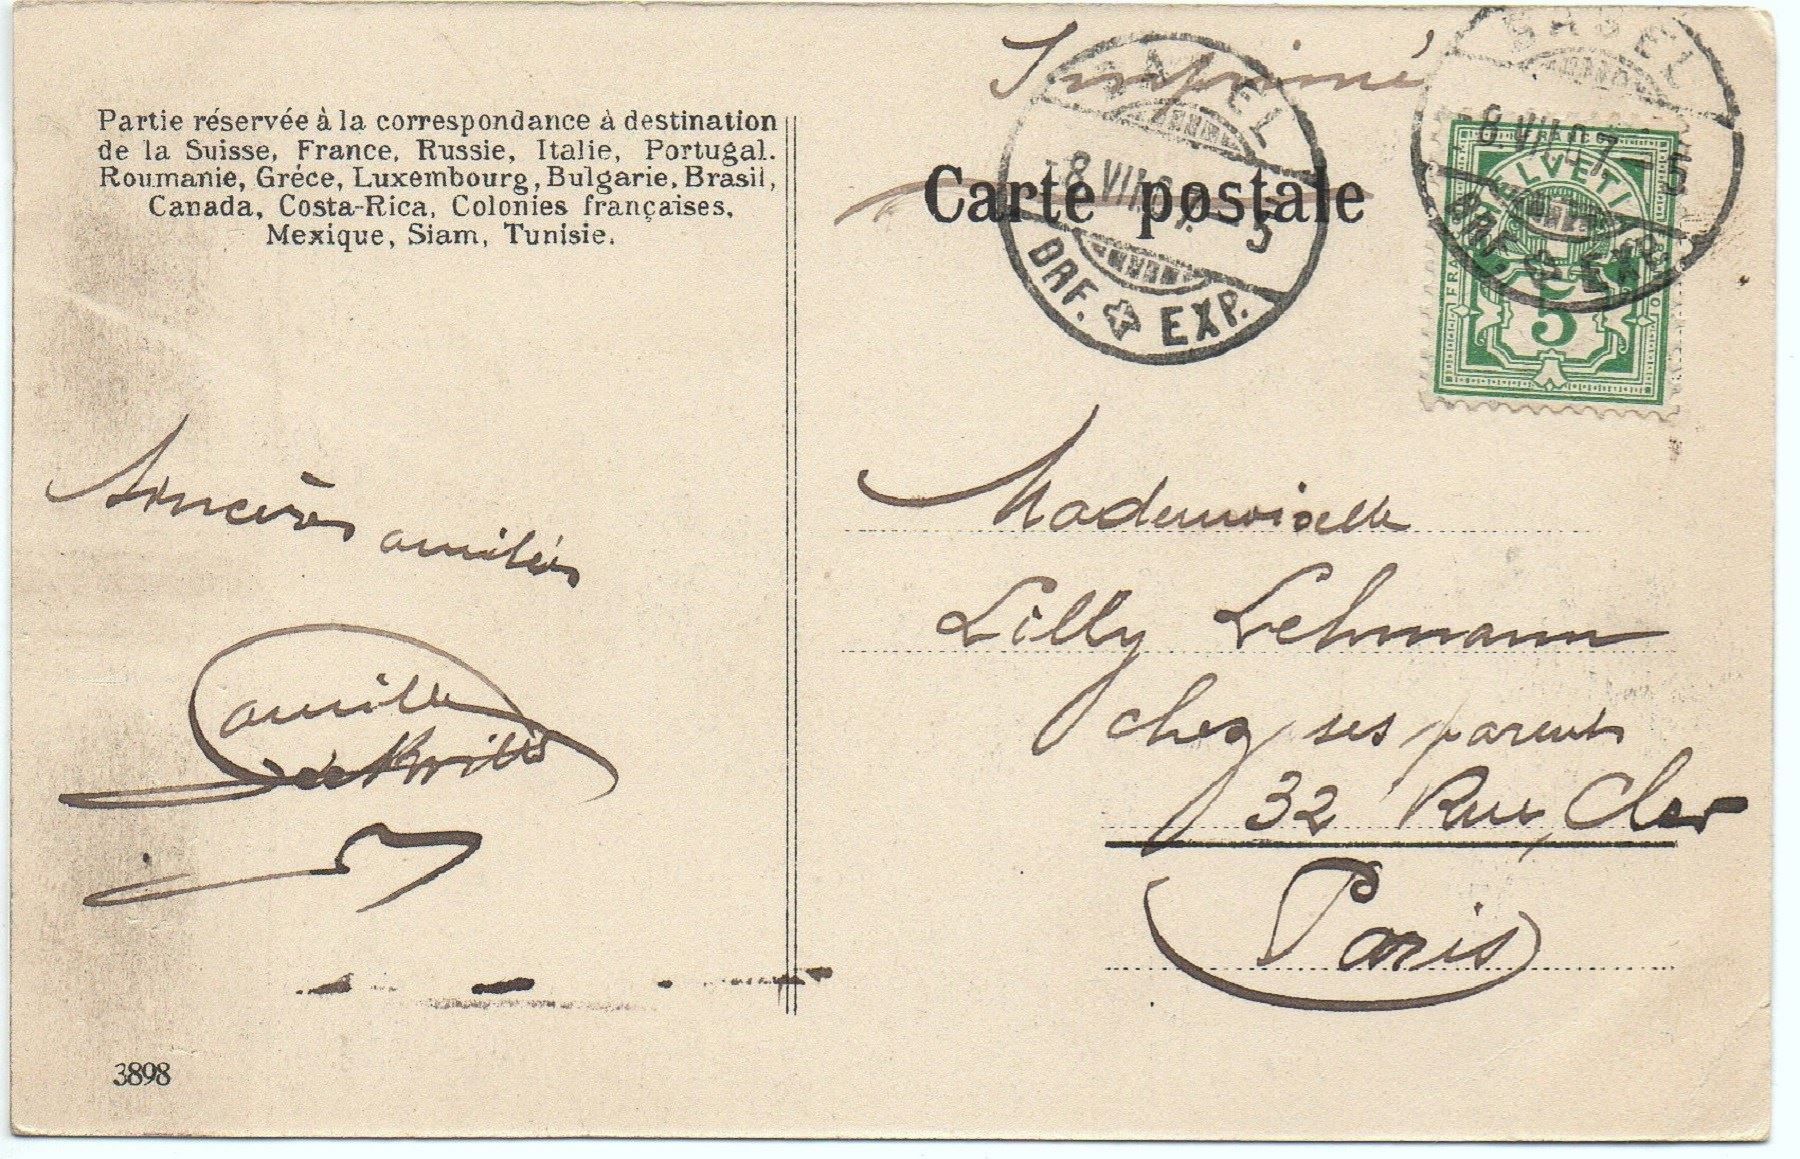 Imprimé
Partie réservée à la correspondance à destination
de la Suisse, France, Russie, Italie, Portugal.
Roumanie, Gréce, Luxembourg, Bulgarie, Brasil,
Canada, Costa-Rica, Colonies françaises,
Mexique, Siam, Tunisie.
Carte postale
BASEL
8.VII.07.-5
BRF. EXP.
BASEL
8.VII.07-5
BRF. EXP.
HELVETIA
FRANCO
5
Sincères amitiés
Camille
Mademoiselle
Lilly Lehmann
chez ses parents
32 Rue Cler
Paris
3898